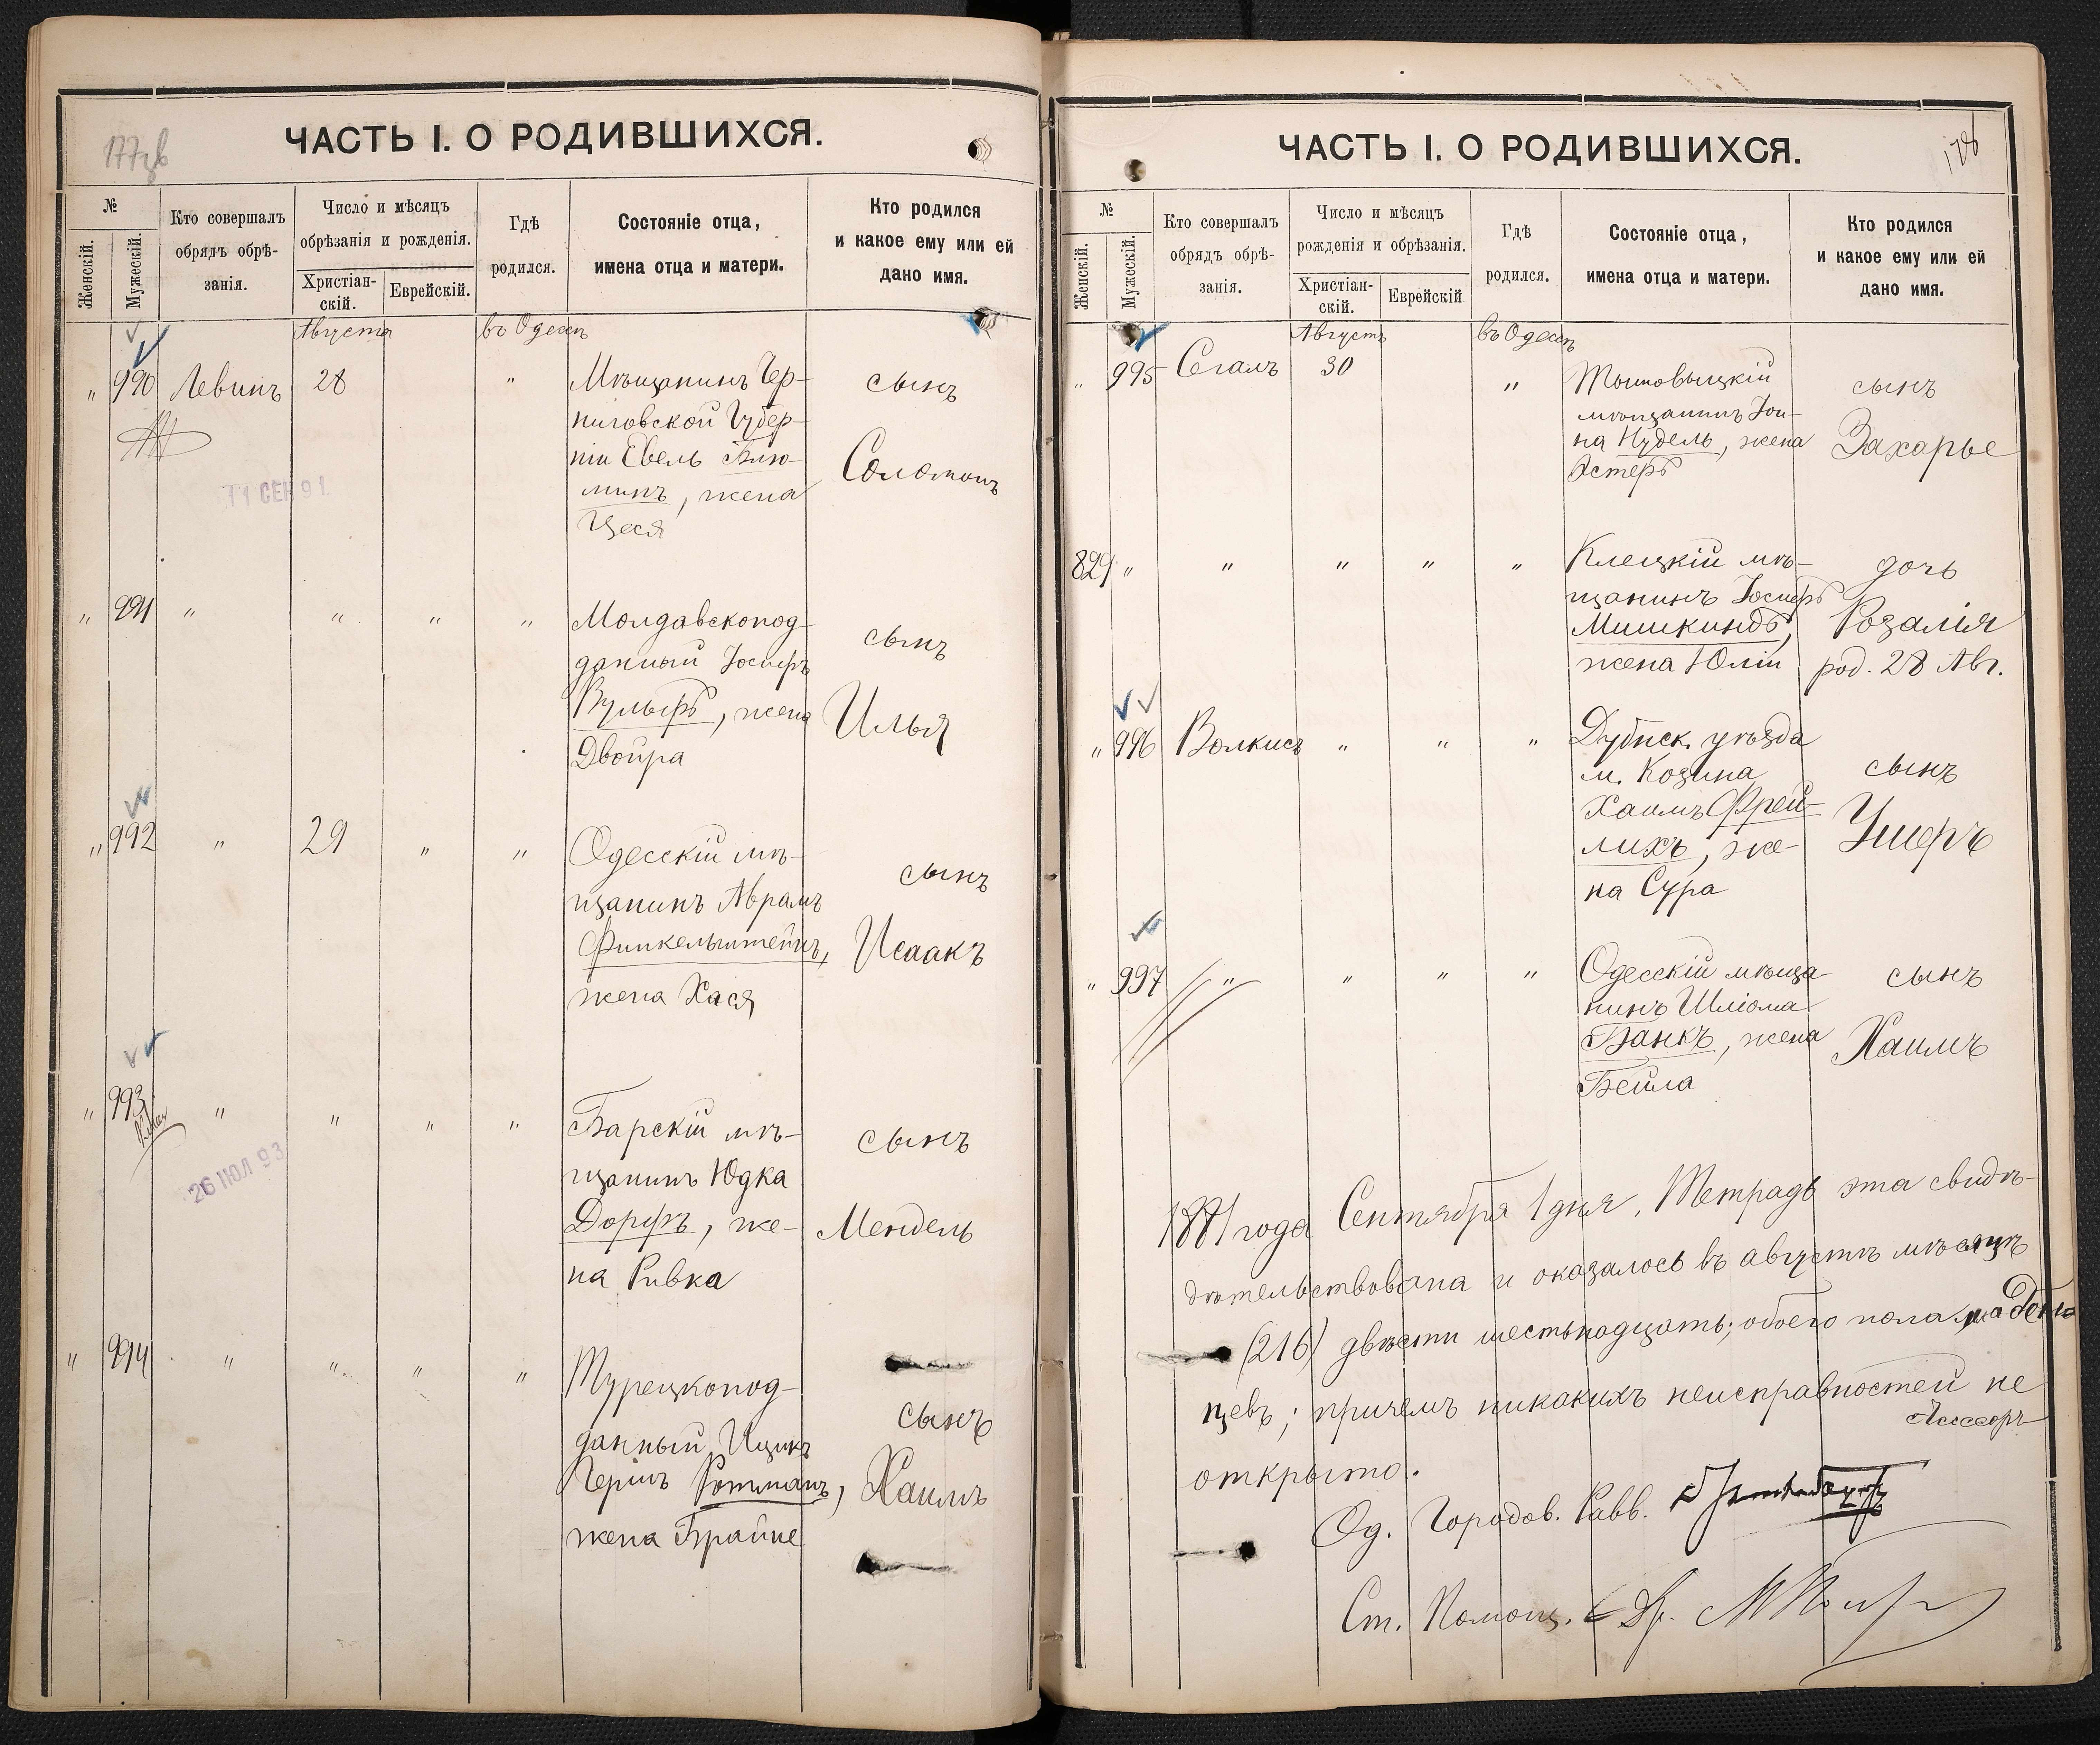 177 об
ЧАСТЬ I. О РОДИВШИХСЯ.
№
Женскій.
Мужескій.
Кто совершалъ
обрядъ обрѣ-
занія.
Число и мѣсяцъ
обрѣзанія и рожденія.
Христіан-
скій.
Еврейскій.
Гдѣ
родился.
Состояніе отца,
имена отца и матери.
Кто родился
и какое ему или ей
дано имя.
Августа
въ Одессѣ
" 990 Левинъ 28 " Мѣщанинъ Чер-
ниговской Губер-
ніи Евель Блю-
минъ, жена
Цеся
сынъ
Соломонъ
11 СЕН 91
" 991 " " " " Молдавскопод-
данный Іосифъ
Вульфъ, жена
Двойра
сынъ
Илья
" 992 " 29 " " Одесскій мѣ-
щанинъ Абрамъ
Финкельштейнъ,
жена Хася
сынъ
Исаакъ
" 993 " " " " Барскій мѣ-
щанинъ Юдка
Дорфъ, же-
на Ривка
сынъ
Мендель
26 ІЮЛ 93
" 994 " " " " Турецкопод-
данный Ицикъ
Гершъ Ротманъ,
жена Брайне
сынъ
Хаимъ
178
ЧАСТЬ I. О РОДИВШИХСЯ.
№
Женскій.
Мужескій.
Кто совершалъ
обрядъ обрѣ-
занія.
Число и мѣсяцъ
рожденія и обрѣзанія.
Христіан-
скій.
Еврейскій
Гдѣ
родился.
Состояніе отца,
имена отца и матери.
Кто родился
и какое ему или ей
дано имя.
Августъ
въ Одессѣ
" 995 Сегалъ 30 "
мѣщанинъ Іои-
на Нудель, жена
Эстеръ
сынъ
Захарье
829 " " " " " Клецкій мѣ-
щанинъ Іосифъ
Мишкиндъ,
жена Юлія
дочь
Розалія
род. 28 Авг.
" 996 Волкисъ " " " Дубнск. уѣзда
м. Козина
Хаимъ Фрей-
лихъ, же-
на Сура
сынъ
Ушеръ
" 997 " " " " Одесскій мѣща-
нинъ Шліома
Банкъ, жена
Бейла
сынъ
Хаимъ
1891 года Сентября 1 дня, Тетрадь эта свидѣ-
дѣтельствована и оказалось въ августѣ мѣсяцѣ
(216) двѣсти шестьнадцать; обоего пола младен-
цевъ; причемъ никакихъ неисправностей не
открыто.
Од. Городов. Равв.
Ст. Помощ. Др.